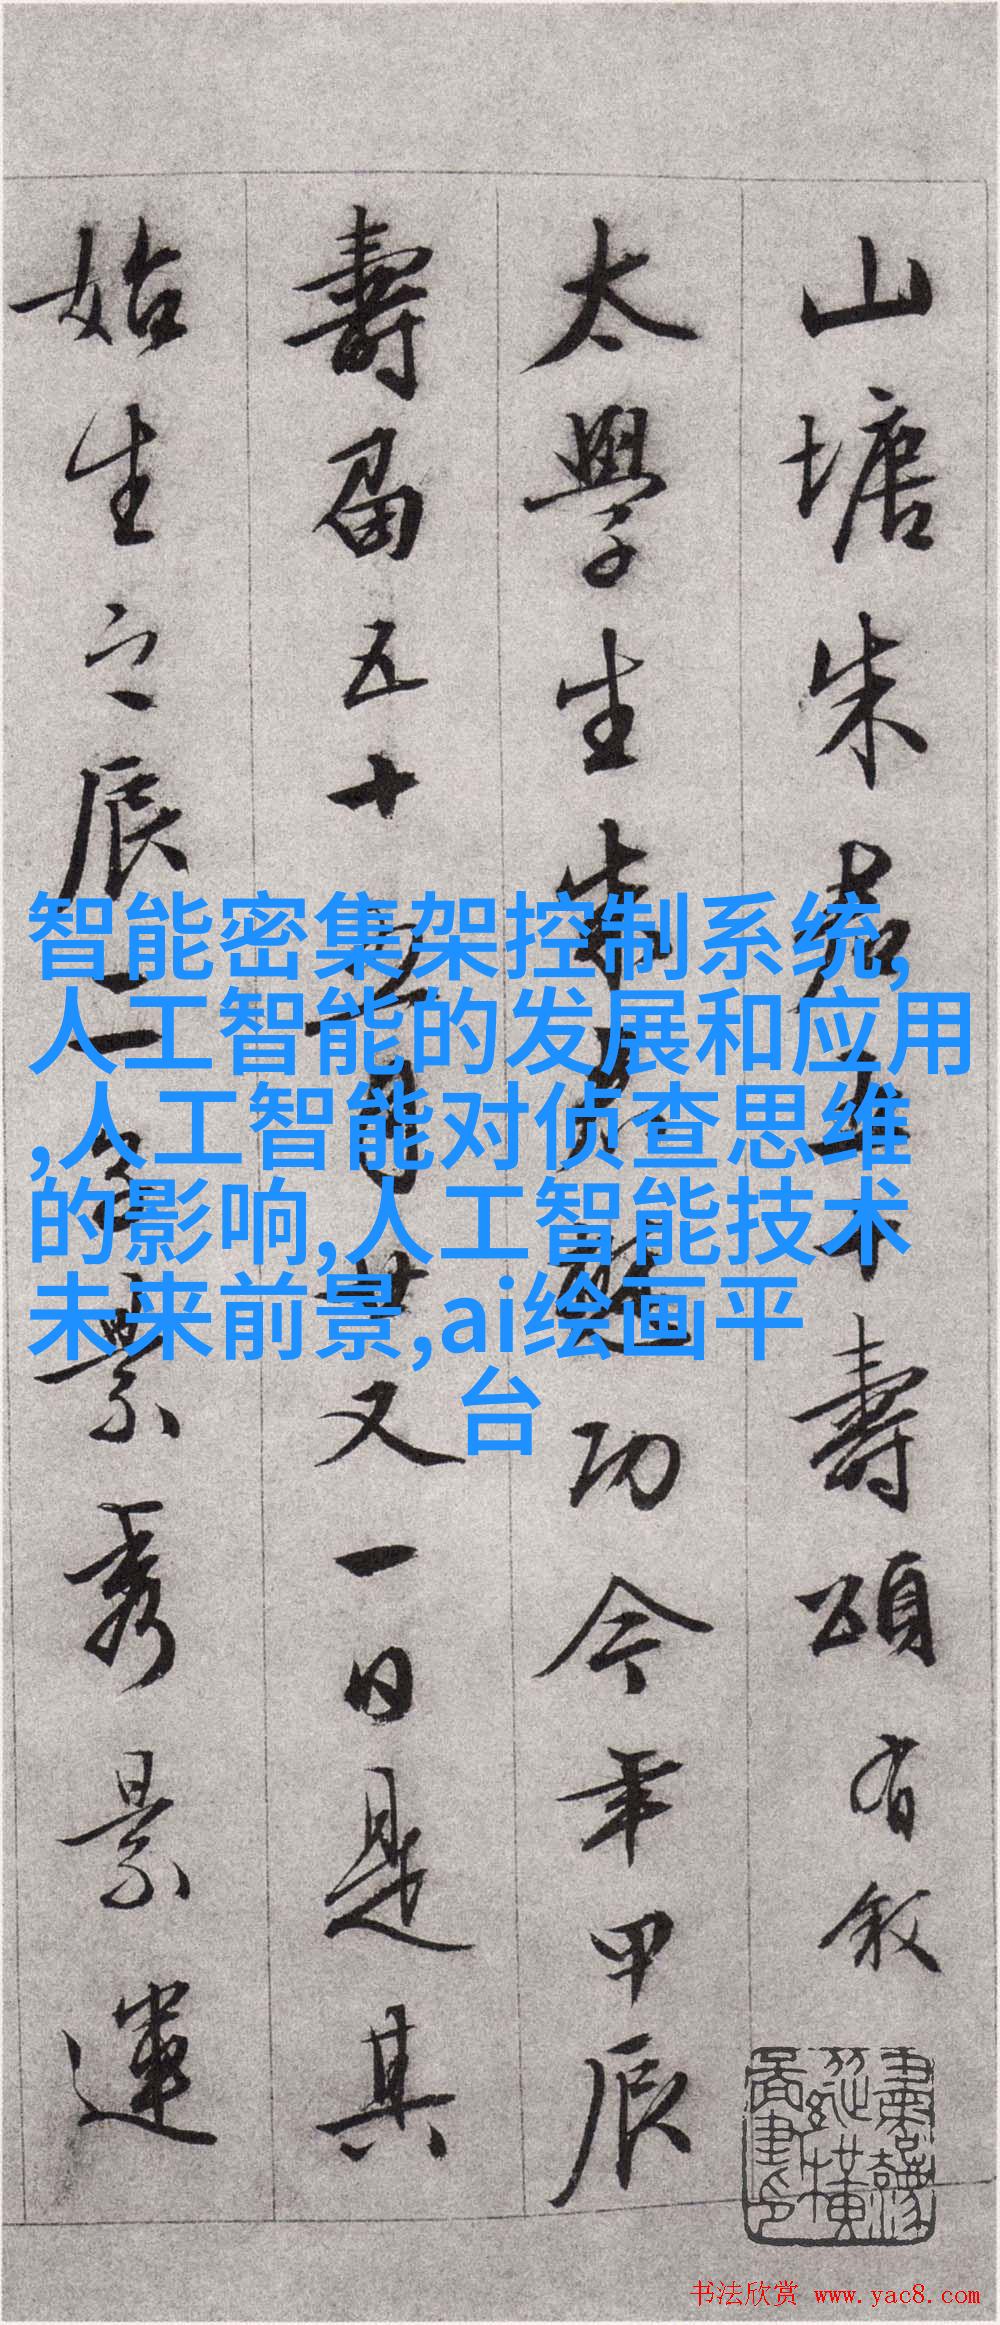 山塘朱君五十壽頌有敘
太學生朱君功今年甲辰
壽屆五十五月廿又一日是其
始生之辰景秀景運
智能密集架控制系统,
人工智能的发展和应用
,人工智能对侦查思维
的影响,人工智能技术
未来前景,ai绘画平
台
书法欣赏 www.yac8.com